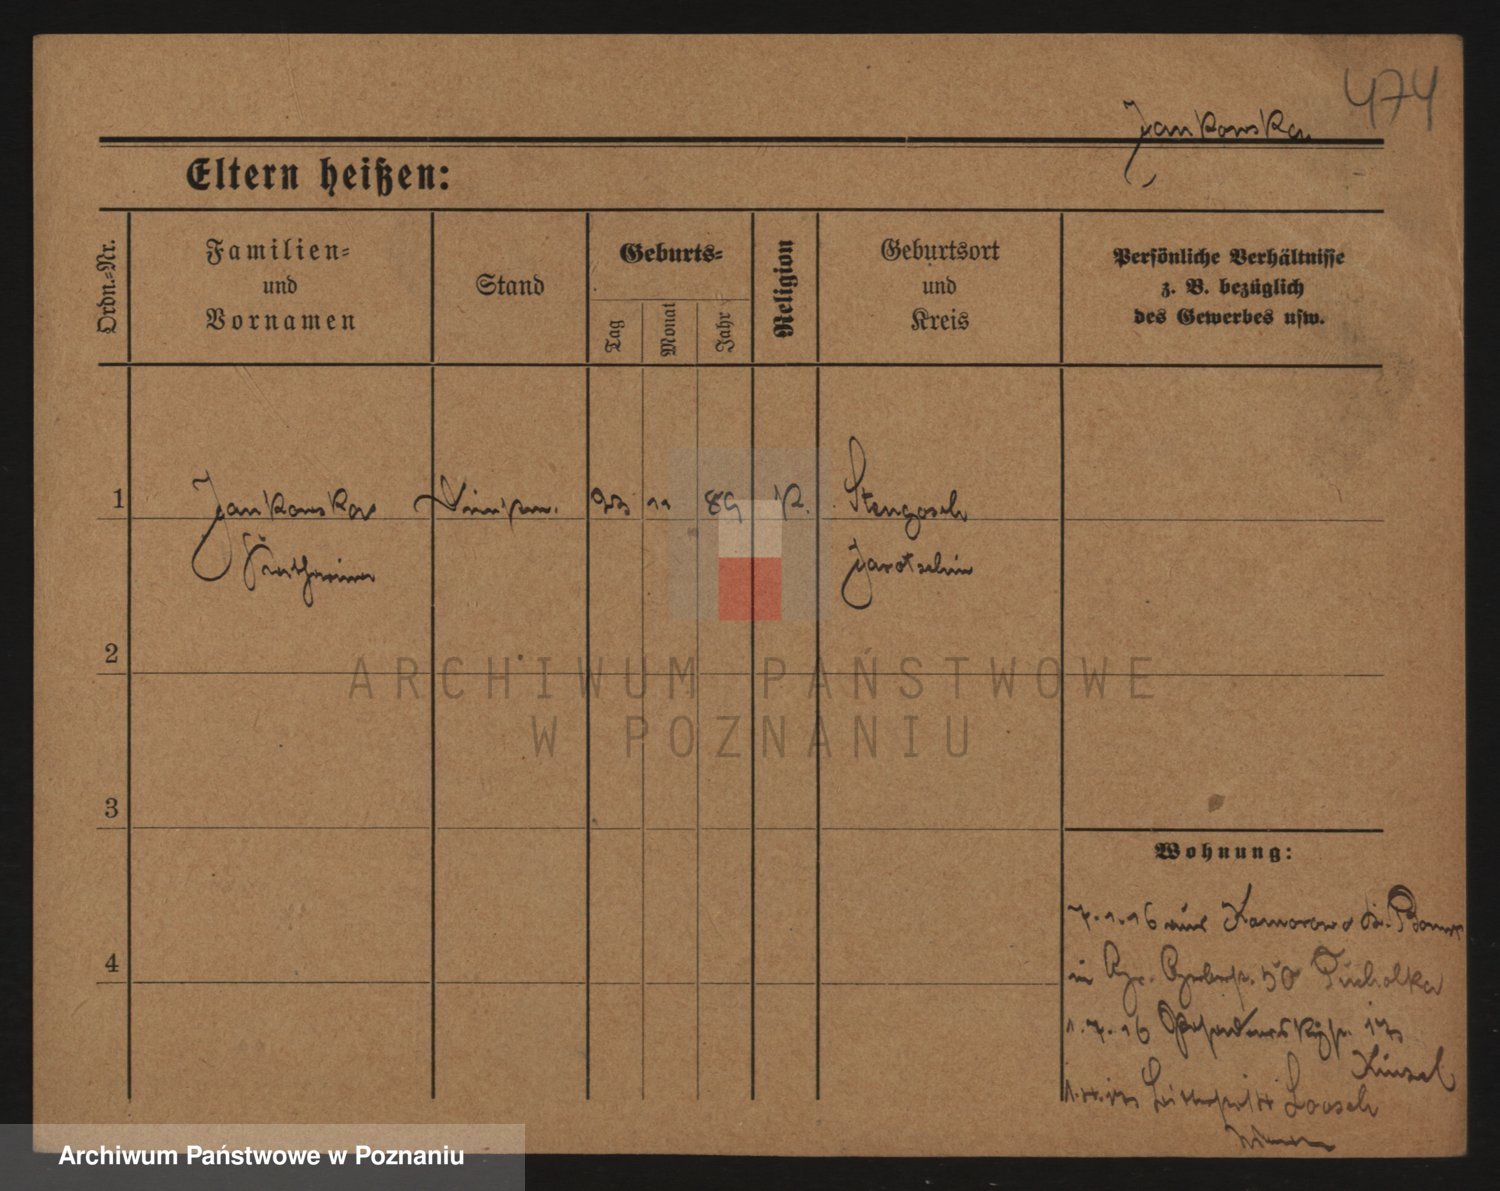 474
Jankowska
Eltern heißen:
Ordn.-Nr.
Familien-
und
Vornamen
Stand
Geburts-
Tag
Monat
Jahr
Religion
Geburtsort
und
Kreis
Persönliche Verhältnisse
z. B. bezüglich
des Gewerbes usw.
1
Jankowska 23 11 89 K. Stengosch
Katharina Jarotschin
2
ARCHIWUM PAŃSTWOWE
W POZNANIU
3
Wohnung:
7.1.16 aus Komorowo
4
in 50 Tucholka
1.7.16
Kinzel
Loosch
Archiwum Państwowe w Poznaniu